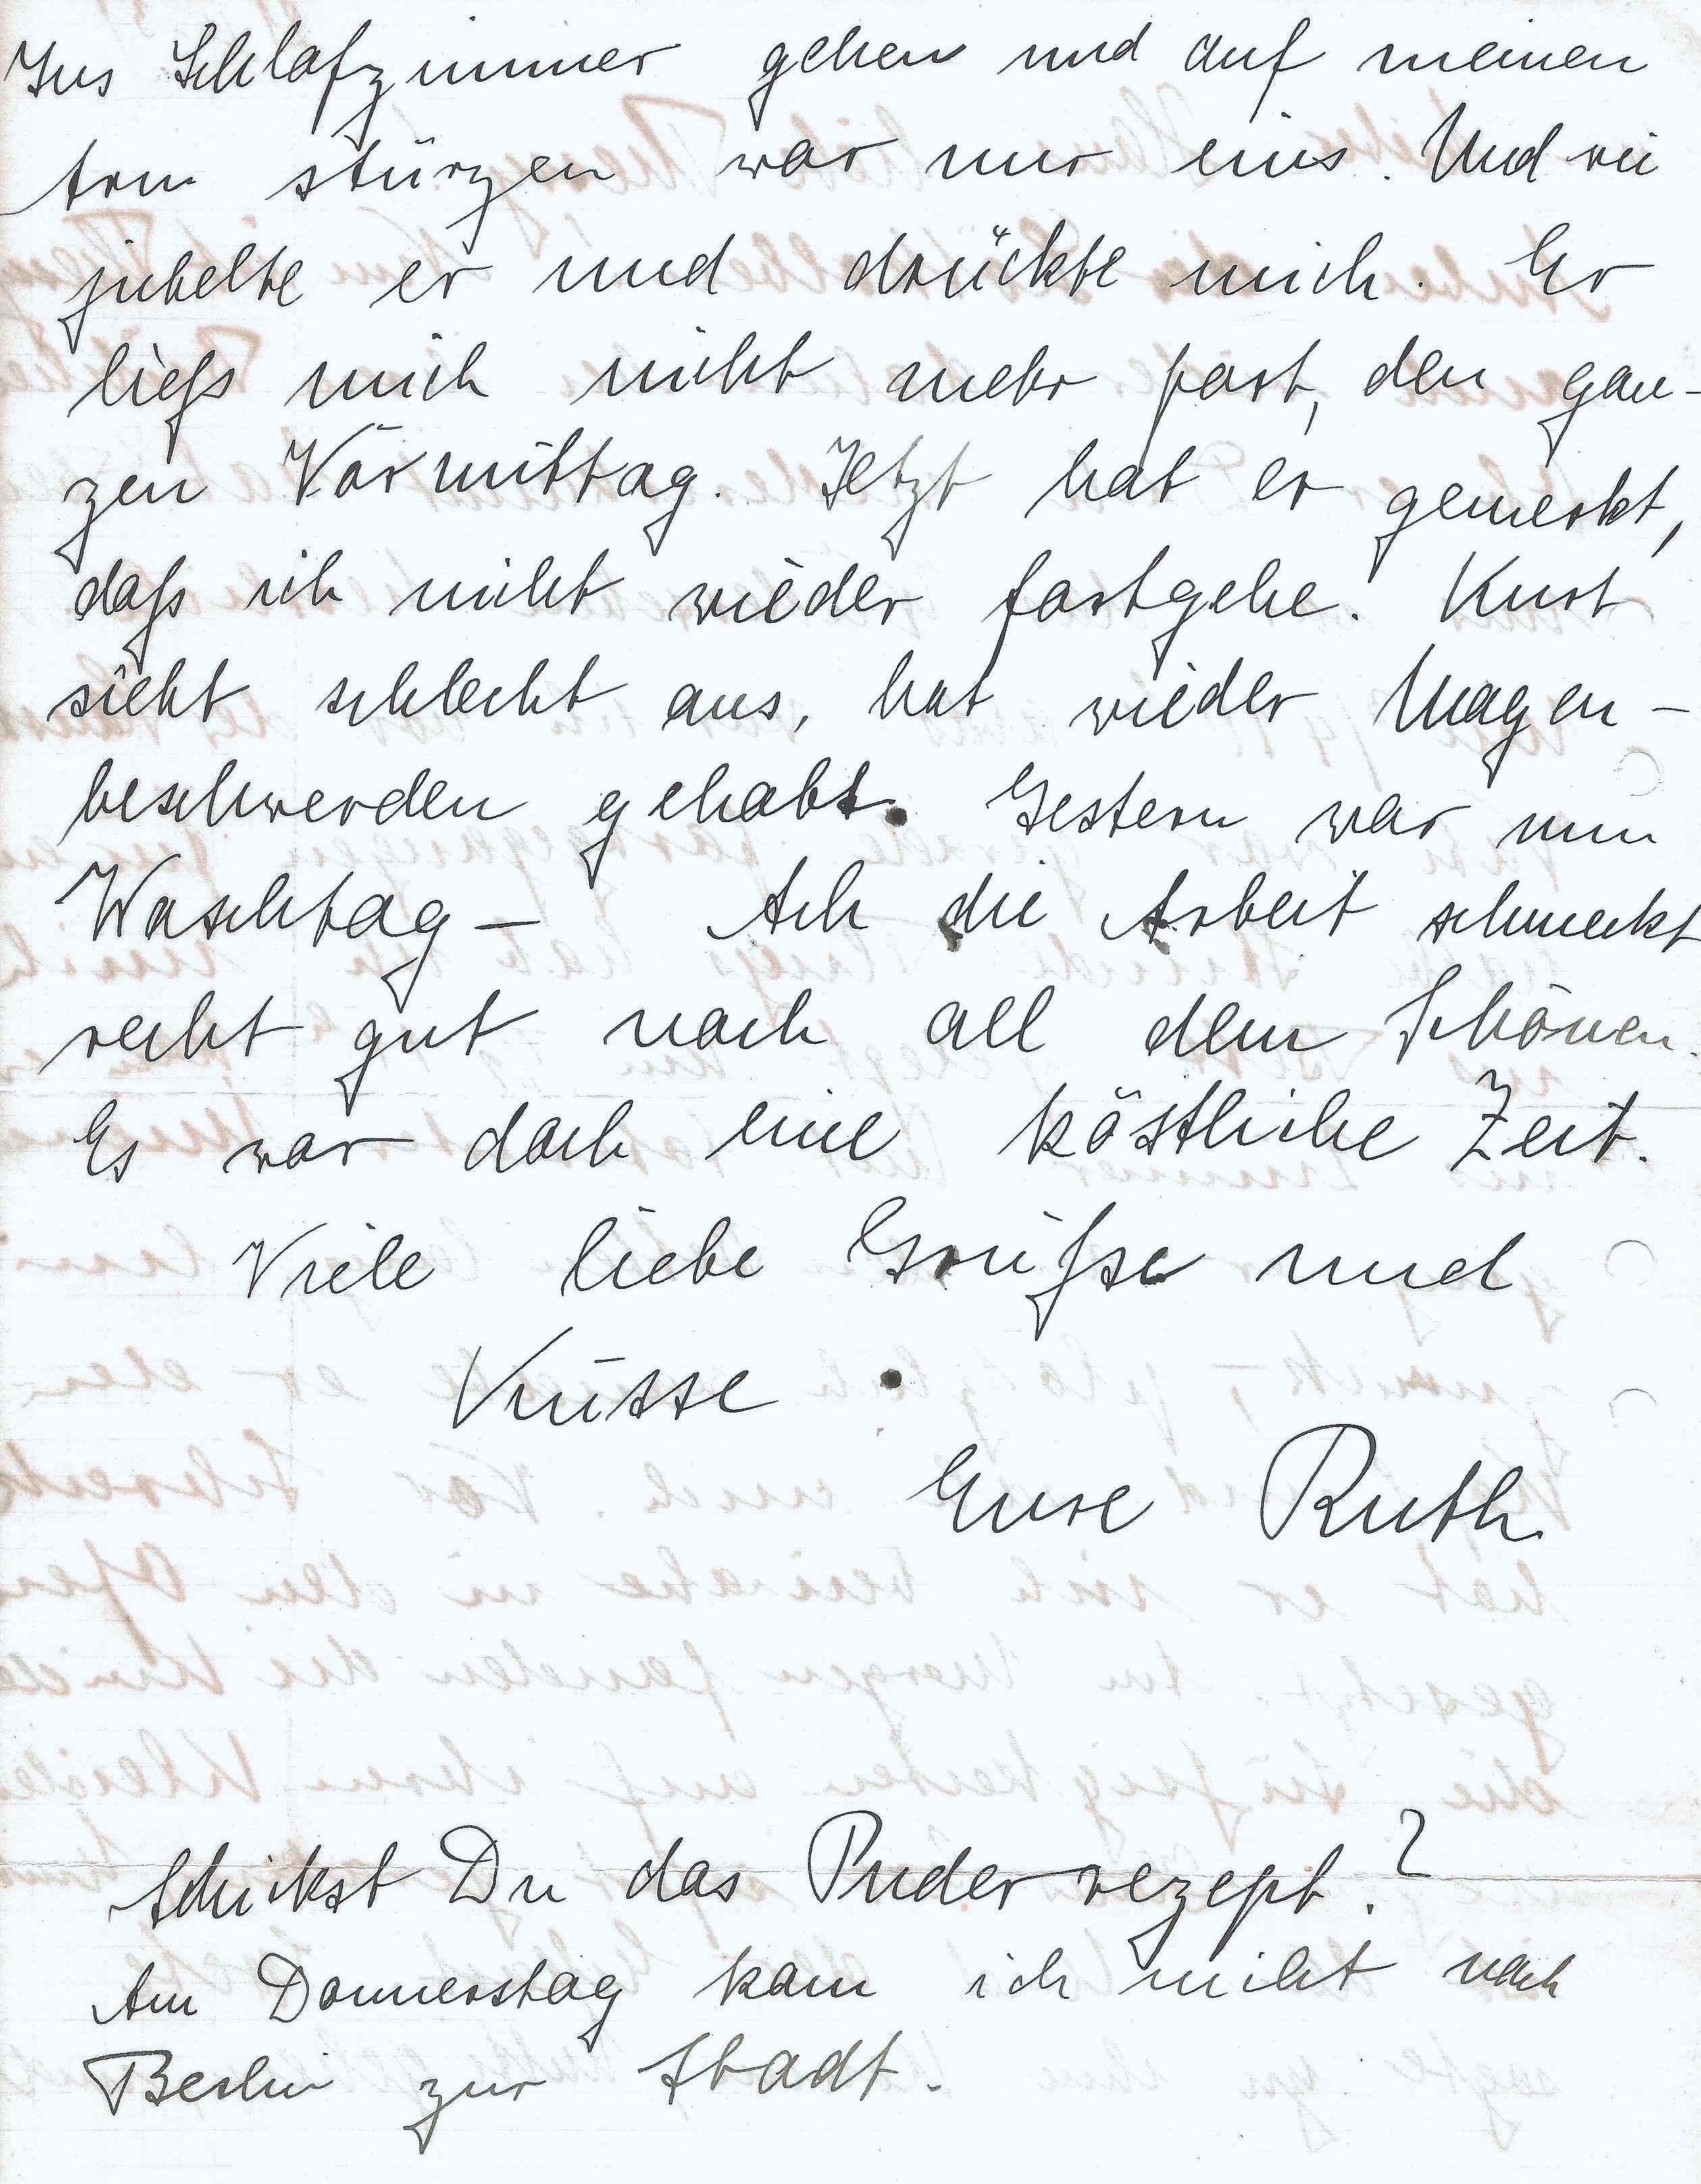 Ins Schlafzimmer gehen und auf meinen
Arm stürzen war nur eins. Und wie
jubelte er und drückte mich. Er
ließ mich nicht mehr fort, den gan-
zen Vormittag. Jetzt hat er gemerkt,
daß ich nicht wieder fortgehe. Kurt
sieht schlecht aus, hat wieder Magen-
beschwerden gehabt. Gestern war nun
Waschtag – Ach die Arbeit schmeckt
recht gut nach all dem Schönen.
Es war doch eine köstliche Zeit.
Viele liebe Grüße und
Küsse
Eure Ruth.
Schickst Du das Puderrezept?
Am Donnerstag kam ich nicht nach
Berlin zur Stadt.